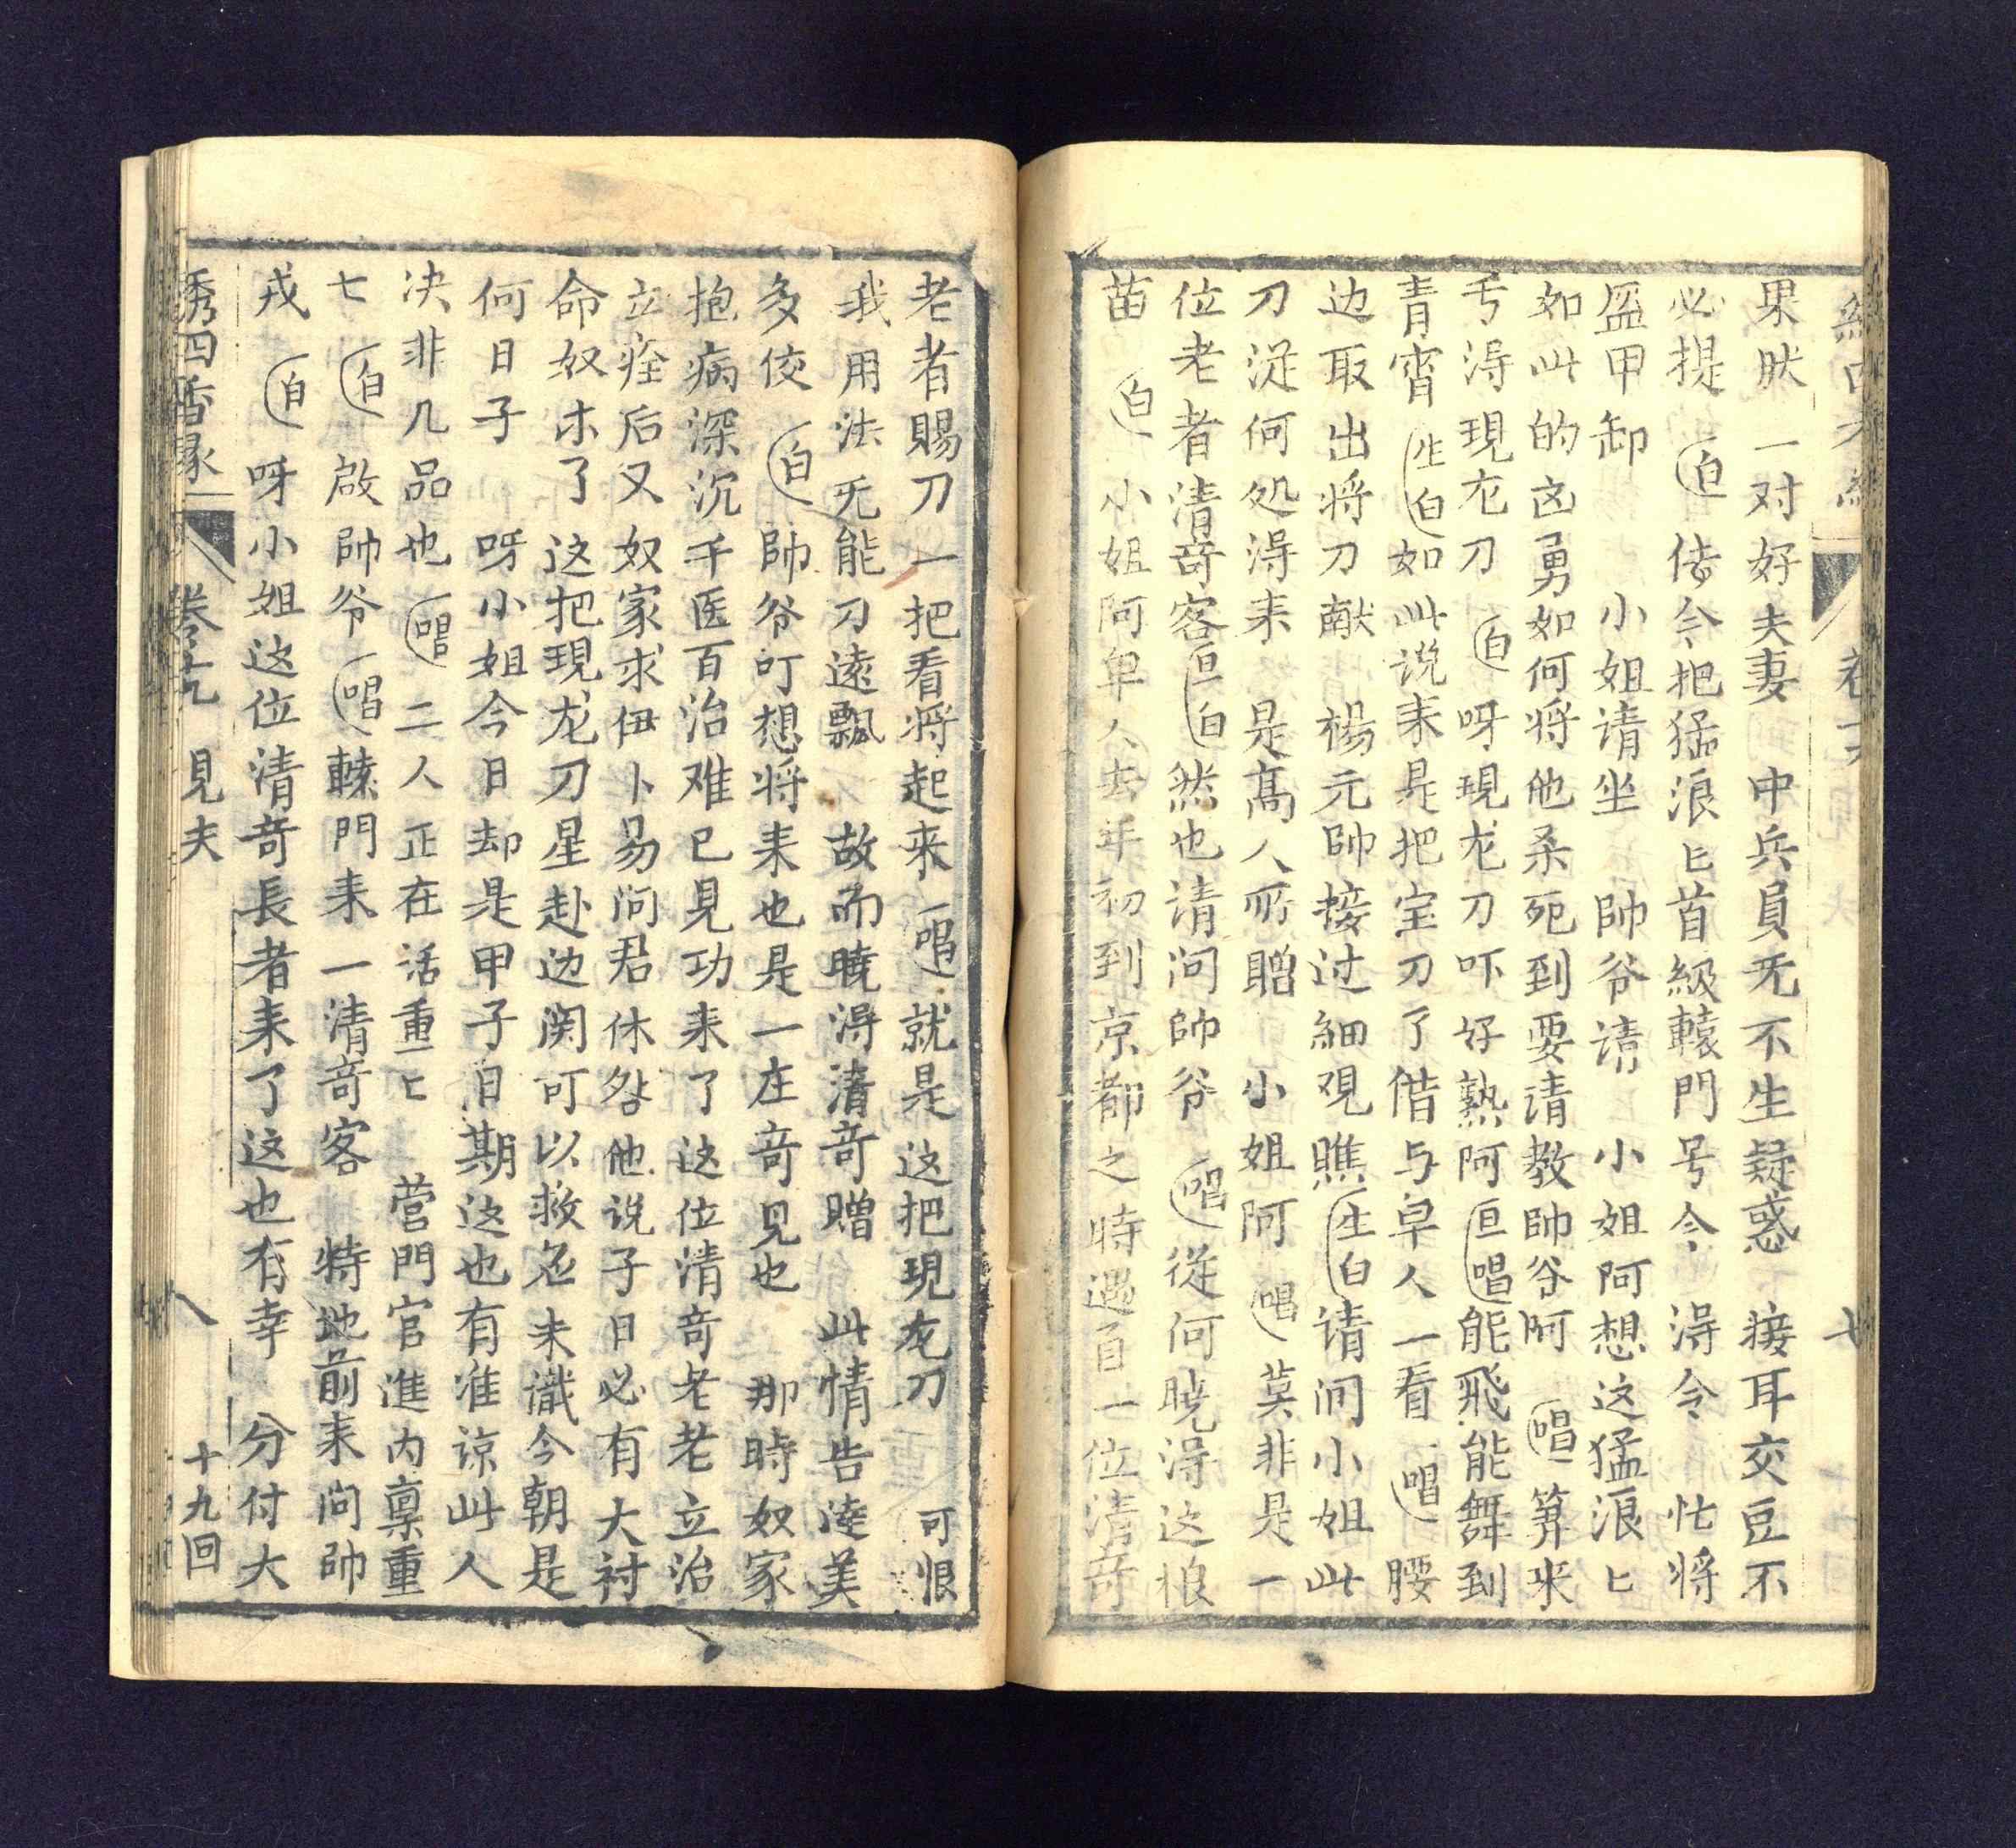 果肰一对好夫妻　中兵員旡不生疑惑　接耳交豆不
必提　白　传令把猛浪匕首級轅門号令　淂令　忙將
盔甲卸　小姐请坐　帥爷请　小姐阿想这猛浪匕
如此的凶勇如何将他杀死到要请教帥爷阿　唱　算来
亏淂現尨刀　白　呀現尨刀吓好熟阿　旦唱　能飛能舞到
青霄　生白　如此说来是把宝刀了借与卑人一看　唱　腰
边取出将刀献　楊元帥接过細观瞧　生白　请问小姐此
刀従何処淂来　是髙人所贈　小姐阿　唱　莫非是一
位老者清奇客　旦白　然也请问帥爷　唱　從何曉淂这根
苗　白　小姐阿卑人去年初到京都之時遇着一位清奇
老者賜刀一把看将起来　唱　就是这把現尨刀　可恨
我用法旡能刀遠飄　故而曉淂清奇贈　此情告達美
多佼　白　帥爷叮想将来也是一庄奇見也　那時奴家
抱病深沉千医百治难已見功来了这位清奇老老立治
立痊后又奴家求伊卜易问君休咎他说子日必有大衬
命奴木了这把現尨刀星赴边関可以救急未識今朝是
何日子　呀小姐今日却是甲子日期这也有准谅此人
决非凡品也　唱　二人正在话重匕　营門官進内禀重
七　白　啟帥爷　唱　轅門来一清奇客　特地前来问帥
戎　白　呀小姐这位清奇長者来了这也有幸　分付大
綉四香緣　見夫　八　十九回